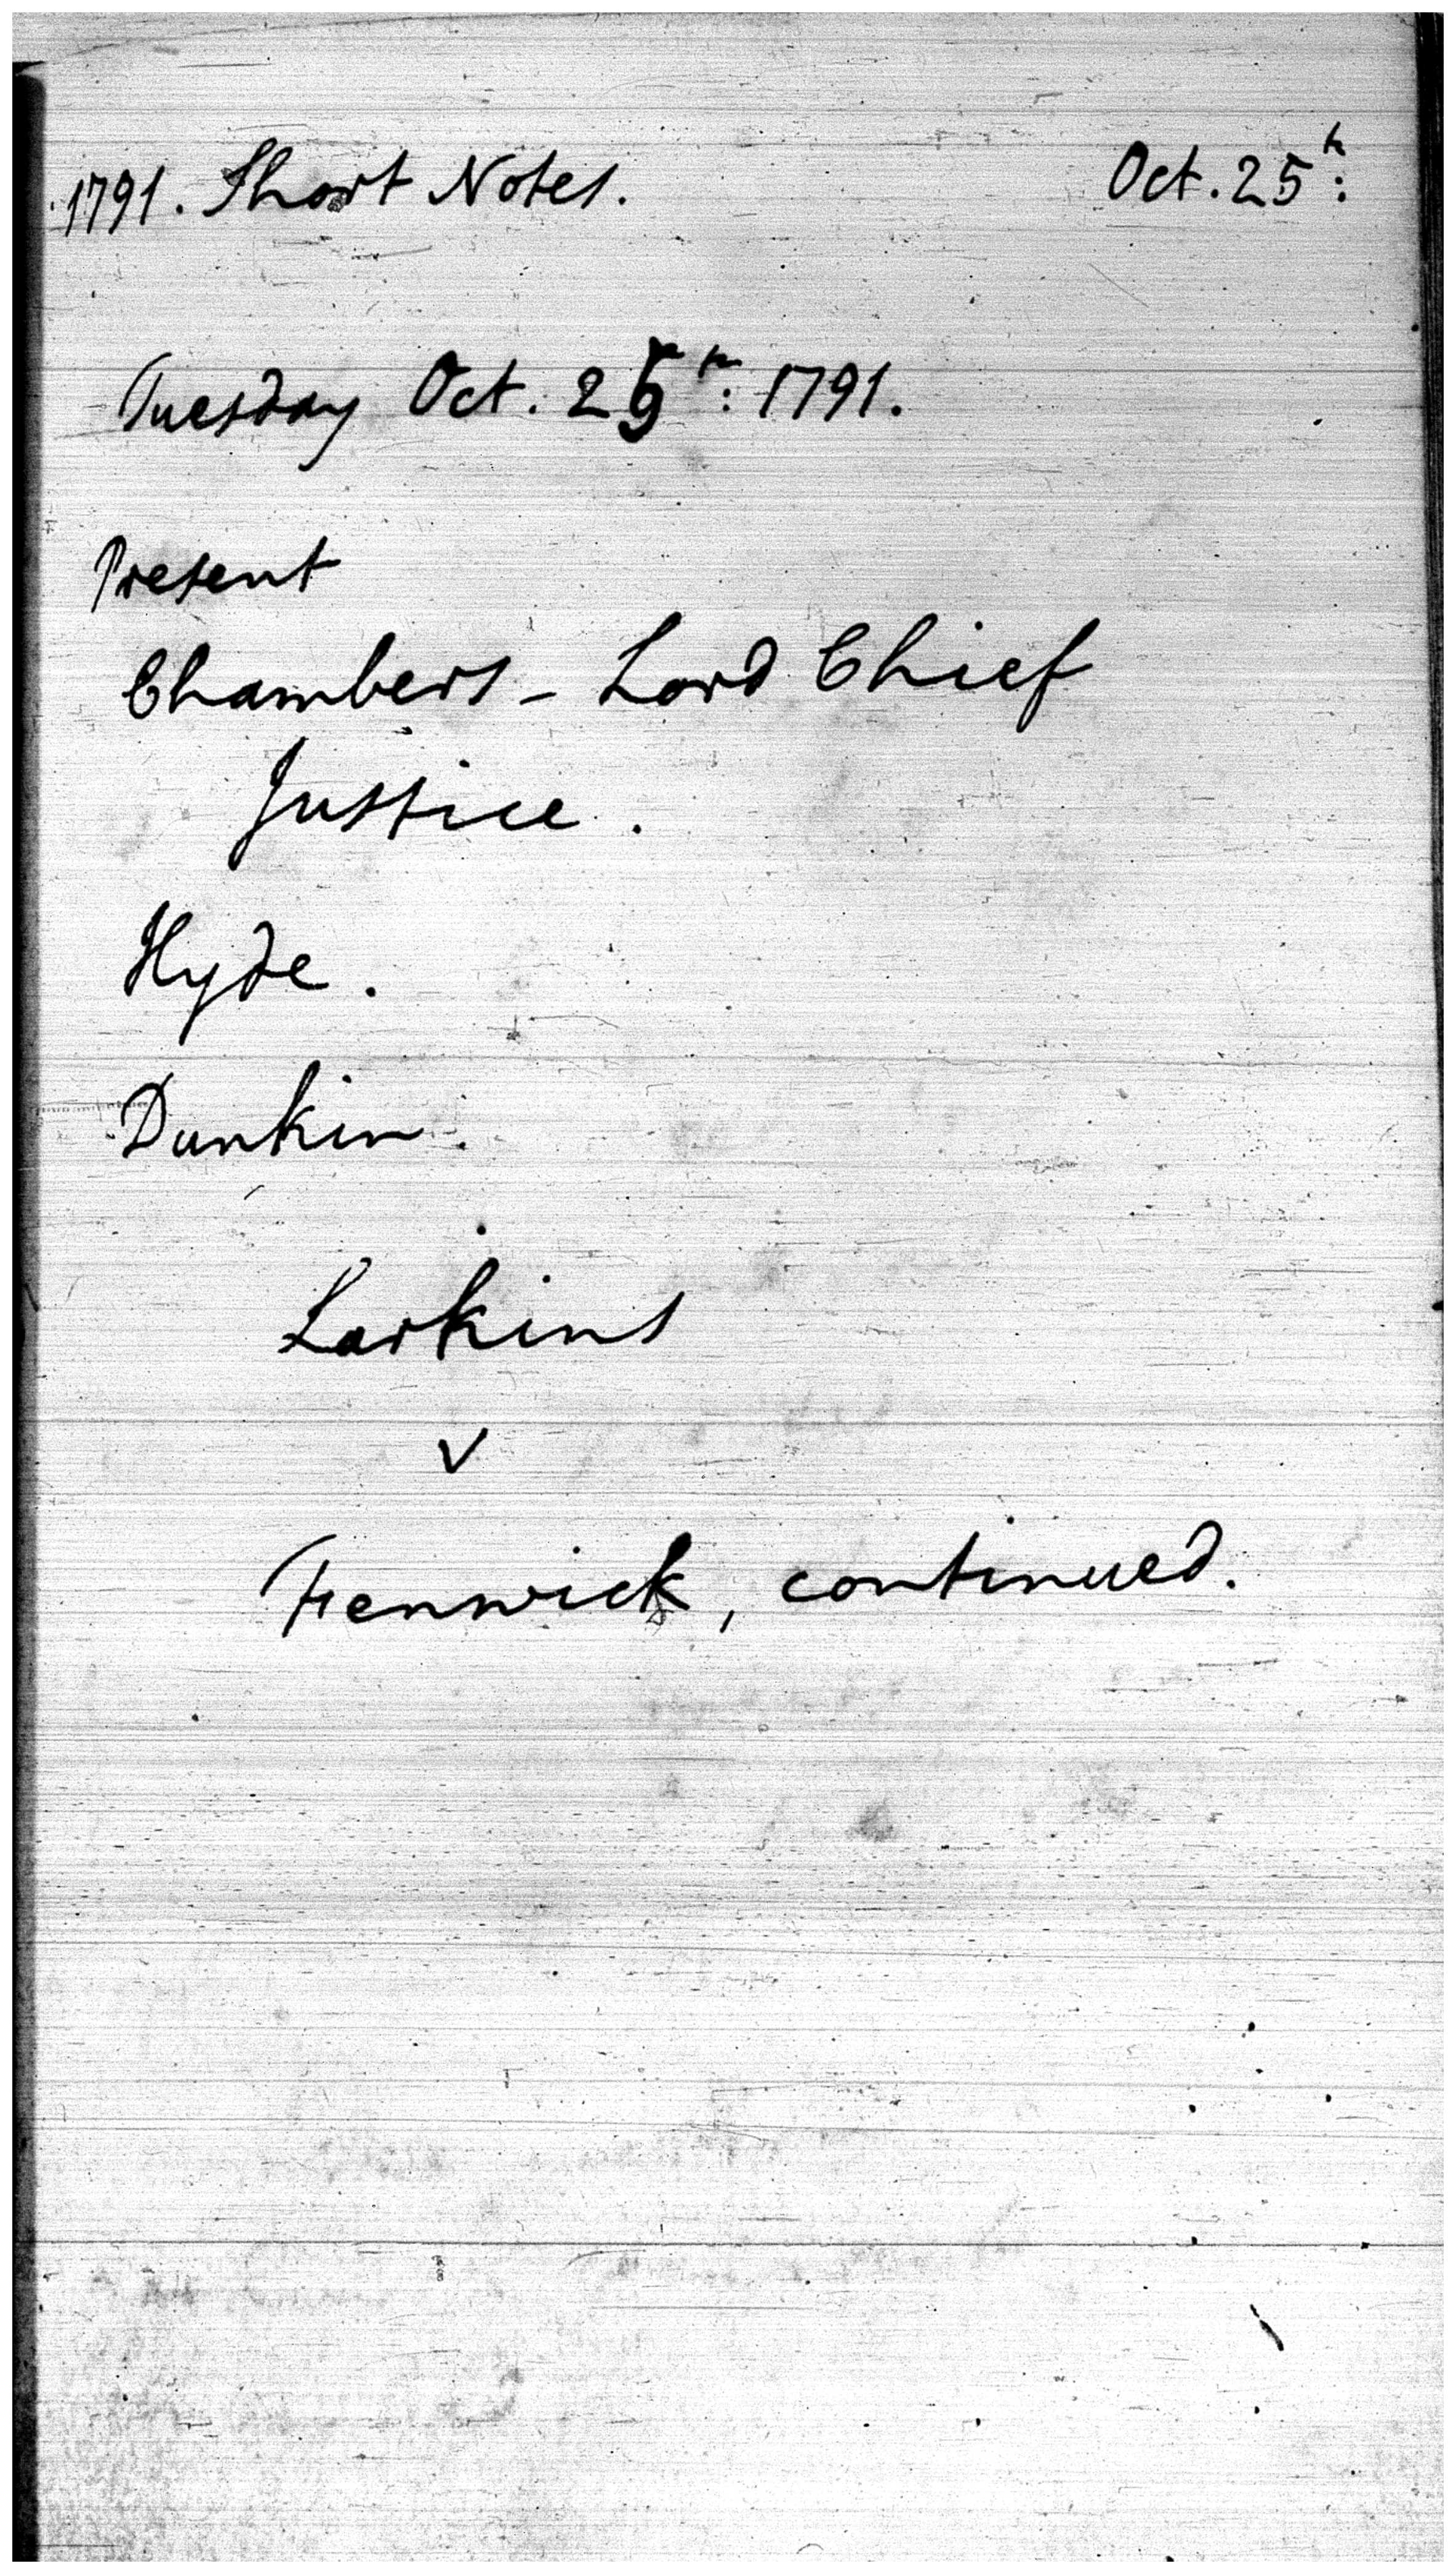 1791. Short Notes. Oct. 25th:
Tuesday Oct. 25th: 1791.
Present
Chambers - Lord Chief
Justice.
Hyde.
Dunkin.
Larkins
v
Fenwick, continued.